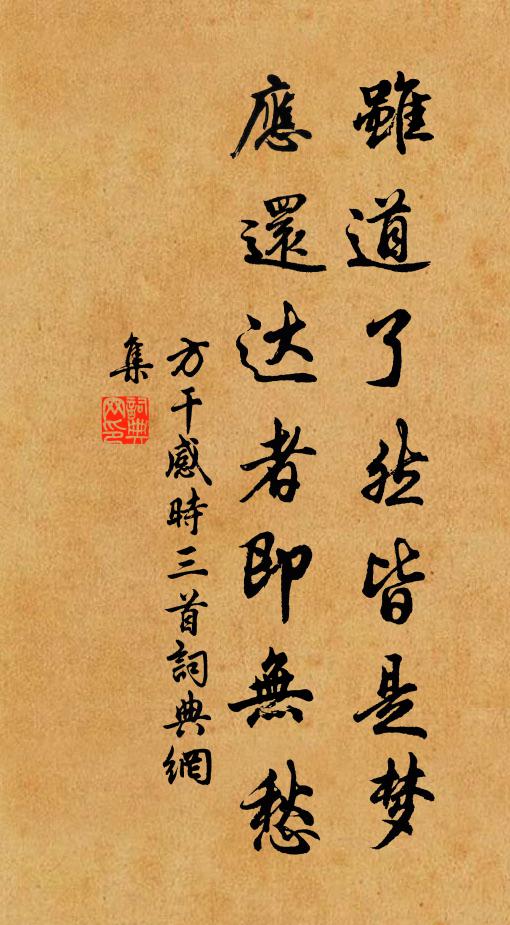 雖道了然皆是梦
應還达者即無愁
方干感時三首詞典網
集
詞典